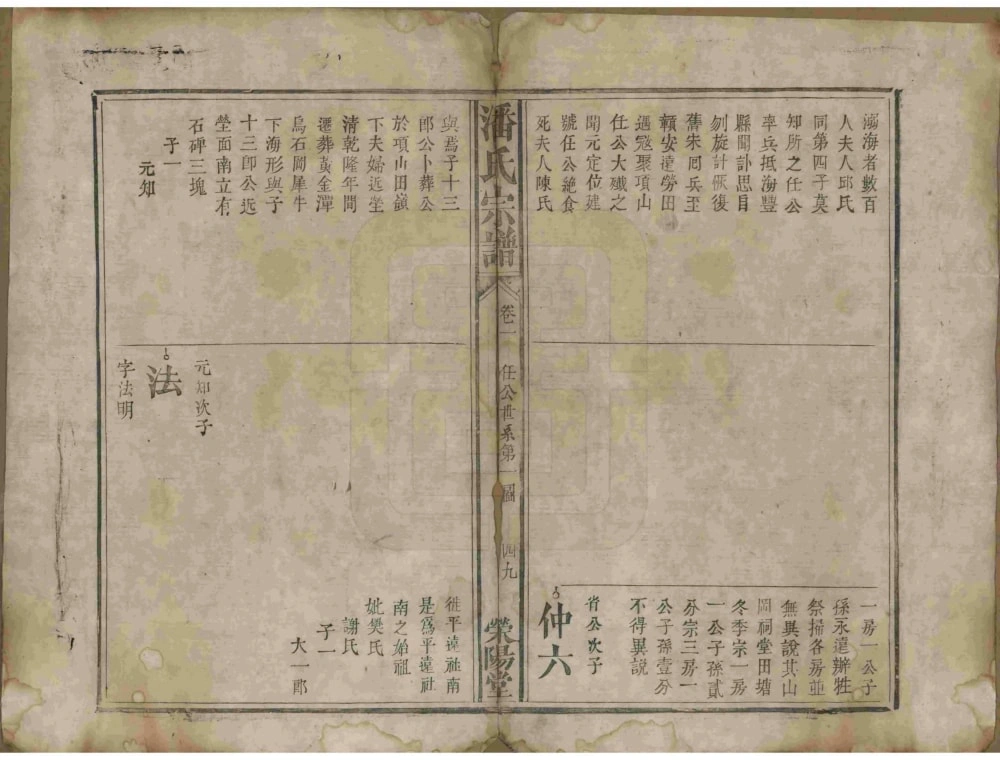 溺海者數百
人夫人邱氏
同第四子莫
知所之任公
率兵抵海豐
縣聞訃思目
刎旋計恢復
舊宋同兵至
賴安遠勞田
遇寇聚項山
任公大殲之
聞元定位建
號任公絶食
死夫人陳氏
一房一公子
孫永遠辦牲
祭掃各房並
無異說其山
岡祠堂田塘
冬季宗一房
一公子孫貳
分宗三房一
公子孫壹分
不得異說
省公次子
仲六
潘氏宗譜
卷一
任公世系第一圖
四九
榮陽堂
與爲子十三
郎公卜葬公
於項山田嶺
下夫婦近塋
清乾隆年間
遷葬黃金潭
烏石岡犀牛
下海形與子
十三郎公近
塋面南立有
石碑三塊
子一
元知
元知次子
法
字法明
徙平遠社南
是爲平遠社
南之始祖
妣樊氏
謝氏
子一
大一郎